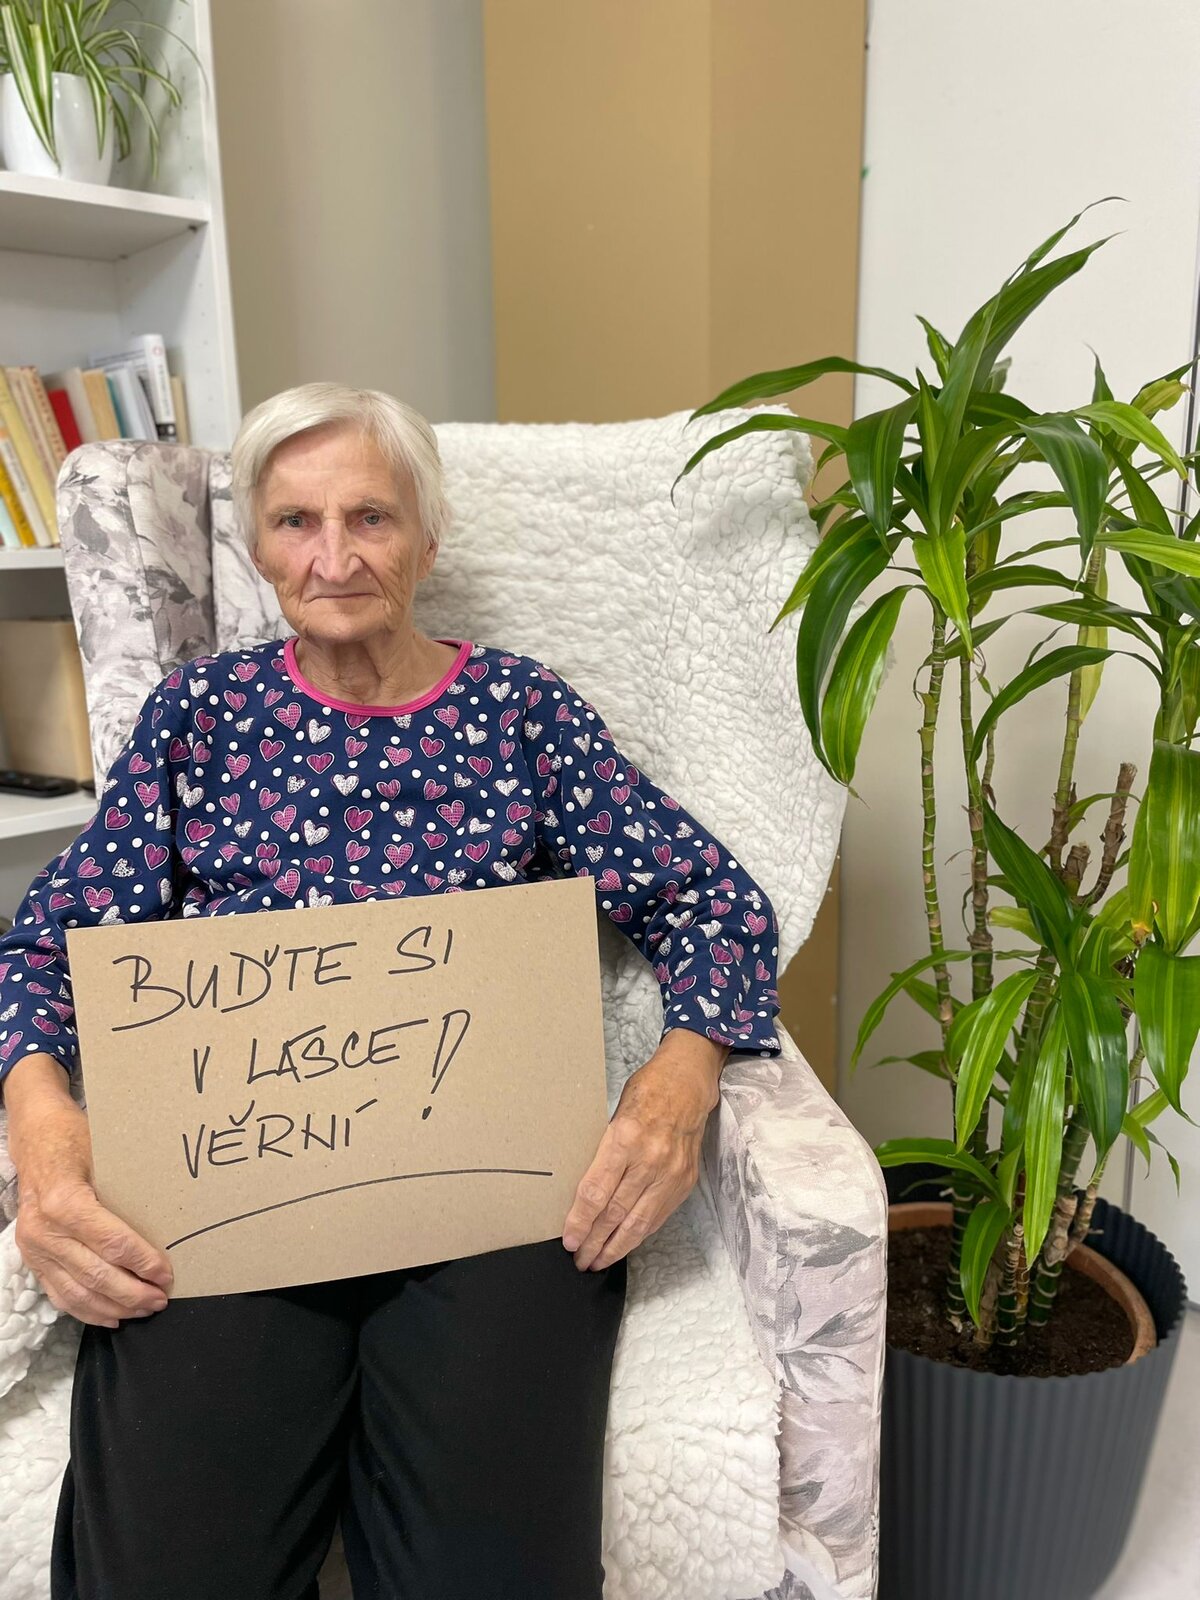 BUĎTE SI
V LÁSCE!
VĚRNÍ